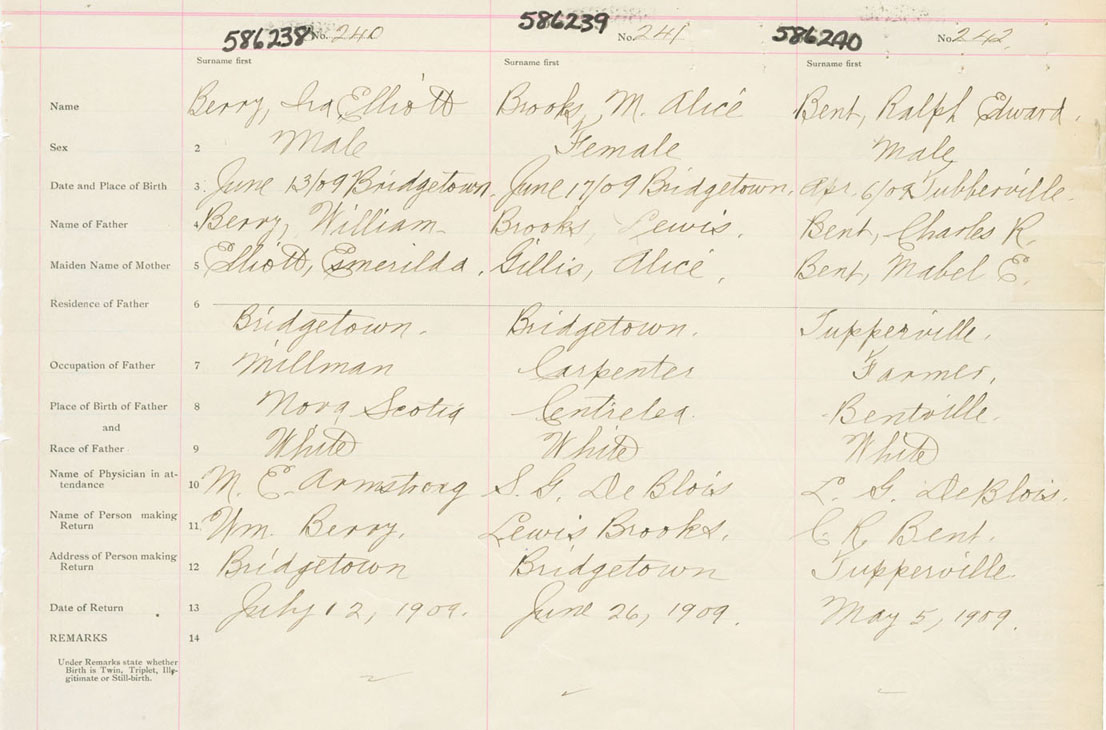 586238 No. 240 586239 No. 241 586240 No. 242.
Surname first Surname first Surname first
Name Berry, Ira Elliott Brooks, M. Alice Bent, Ralph Edward.
Sex 2 Male Female Male
Date and Place of Birth 3. June 13/09 Bridgetown. June 17/09 Bridgetown. Apr. 6/09 Tubberville.
Name of Father 4 Berry, William Brooks, Lewis. Bent, Charles R.
Maiden Name of Mother 5 Elliott, Esmerilda. Gillis, Alice, Bent, Mabel E.
Residence of Father 6
Bridgetown. Bridgetown. Tupperville.
Occupation of Father 7 Millman Carpenter Farmer.
Place of Birth of Father 8 Nova Scotia Centrelea. Bentville
and
Race of Father 9 White White White
Name of Physician in at-
tendance 10 M. E. Armstrong S. G. DeBlois L. G. DeBlois.
Name of Person making
Return 11 Wm. Berry. Lewis Brooks. C R. Bent.
Address of Person making
Return 12 Bridgetown Bridgetown Tupperville.
Date of Return 13 July 12, 1909. June 26, 1909. May 5, 1909.
REMARKS 14
Under Remarks state whether
Birth is Twin, Triplet, Ille-
gitimate or Still-birth.